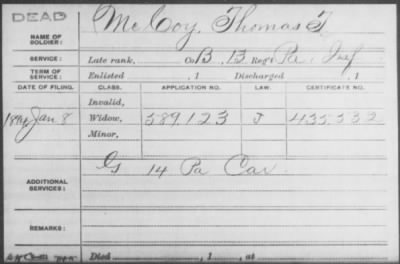 DEAD
NAME OF SOLDIER: McCoy, Thomas F
SERVICE: Late rank, Co. B, 13 Reg't Pa Inf
TERM OF SERVICE: Enlisted , 1 Discharged , 1
DATE OF FILING. CLASS. APPLICATION NO. LAW. CERTIFICATE NO.
Invalid,
Jan. 8 Widow, 589.123 J 435.532
Minor,
ADDITIONAL SERVICES: G 14 Pa Cav
REMARKS:
Died , 1 , at